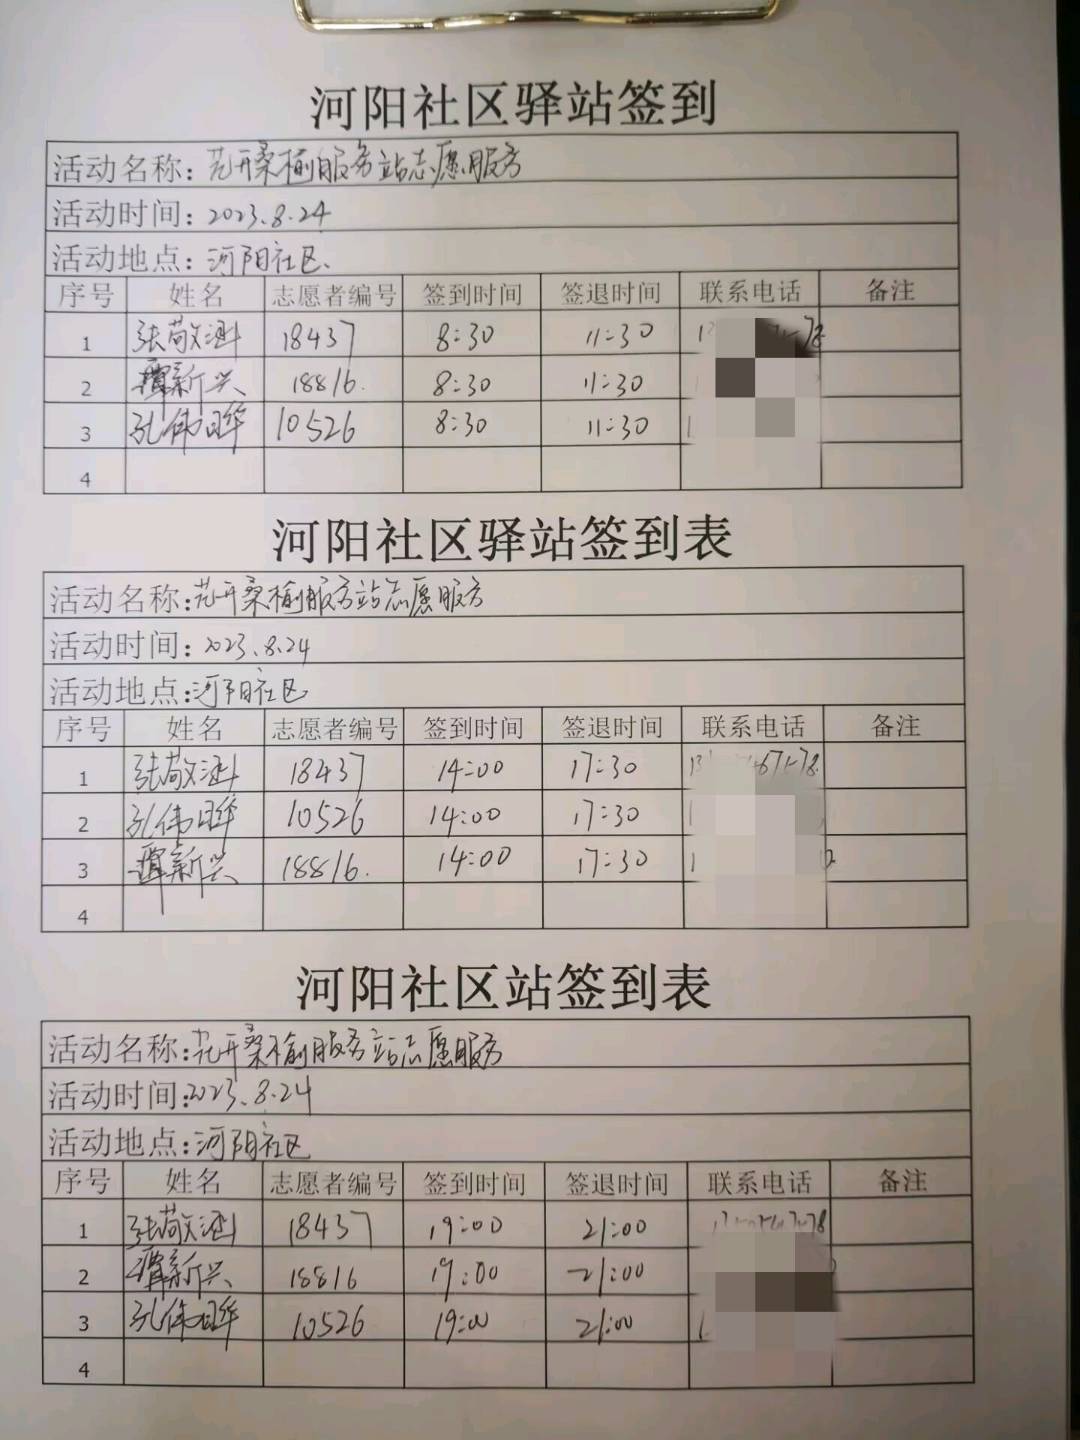 河阳社区驿站签到
活动名称: 花开桑榆服务站志愿服务
活动时间: 2023.8.24
活动地点: 河阳社区.
序号 姓名 志愿者编号 签到时间 签退时间 联系电话 备注
1 张敬涵 18437 8:30 11:30
2 谭新兴 18816. 8:30 11:30
3 孔伟晔 10526 8:30 11:30
4
河阳社区驿站签到表
活动名称: 花开桑榆服务站志愿服务
活动时间: 2023.8.24
活动地点: 河阳社区
序号 姓名 志愿者编号 签到时间 签退时间 联系电话 备注
1 张敬涵 18437 14:00 17:30
2 孔伟晔 10526 14:00 17:30
3 谭新兴 18816. 14:00 17:30
4
河阳社区站签到表
活动名称: 花开桑榆服务站志愿服务
活动时间: 2023.8.24
活动地点: 河阳社区
序号 姓名 志愿者编号 签到时间 签退时间 联系电话 备注
1 张敬涵 18437 19:00 21:00
2 谭新兴 18816 19:00 21:00
3 孔伟晔 10526 19:00 21:00
4